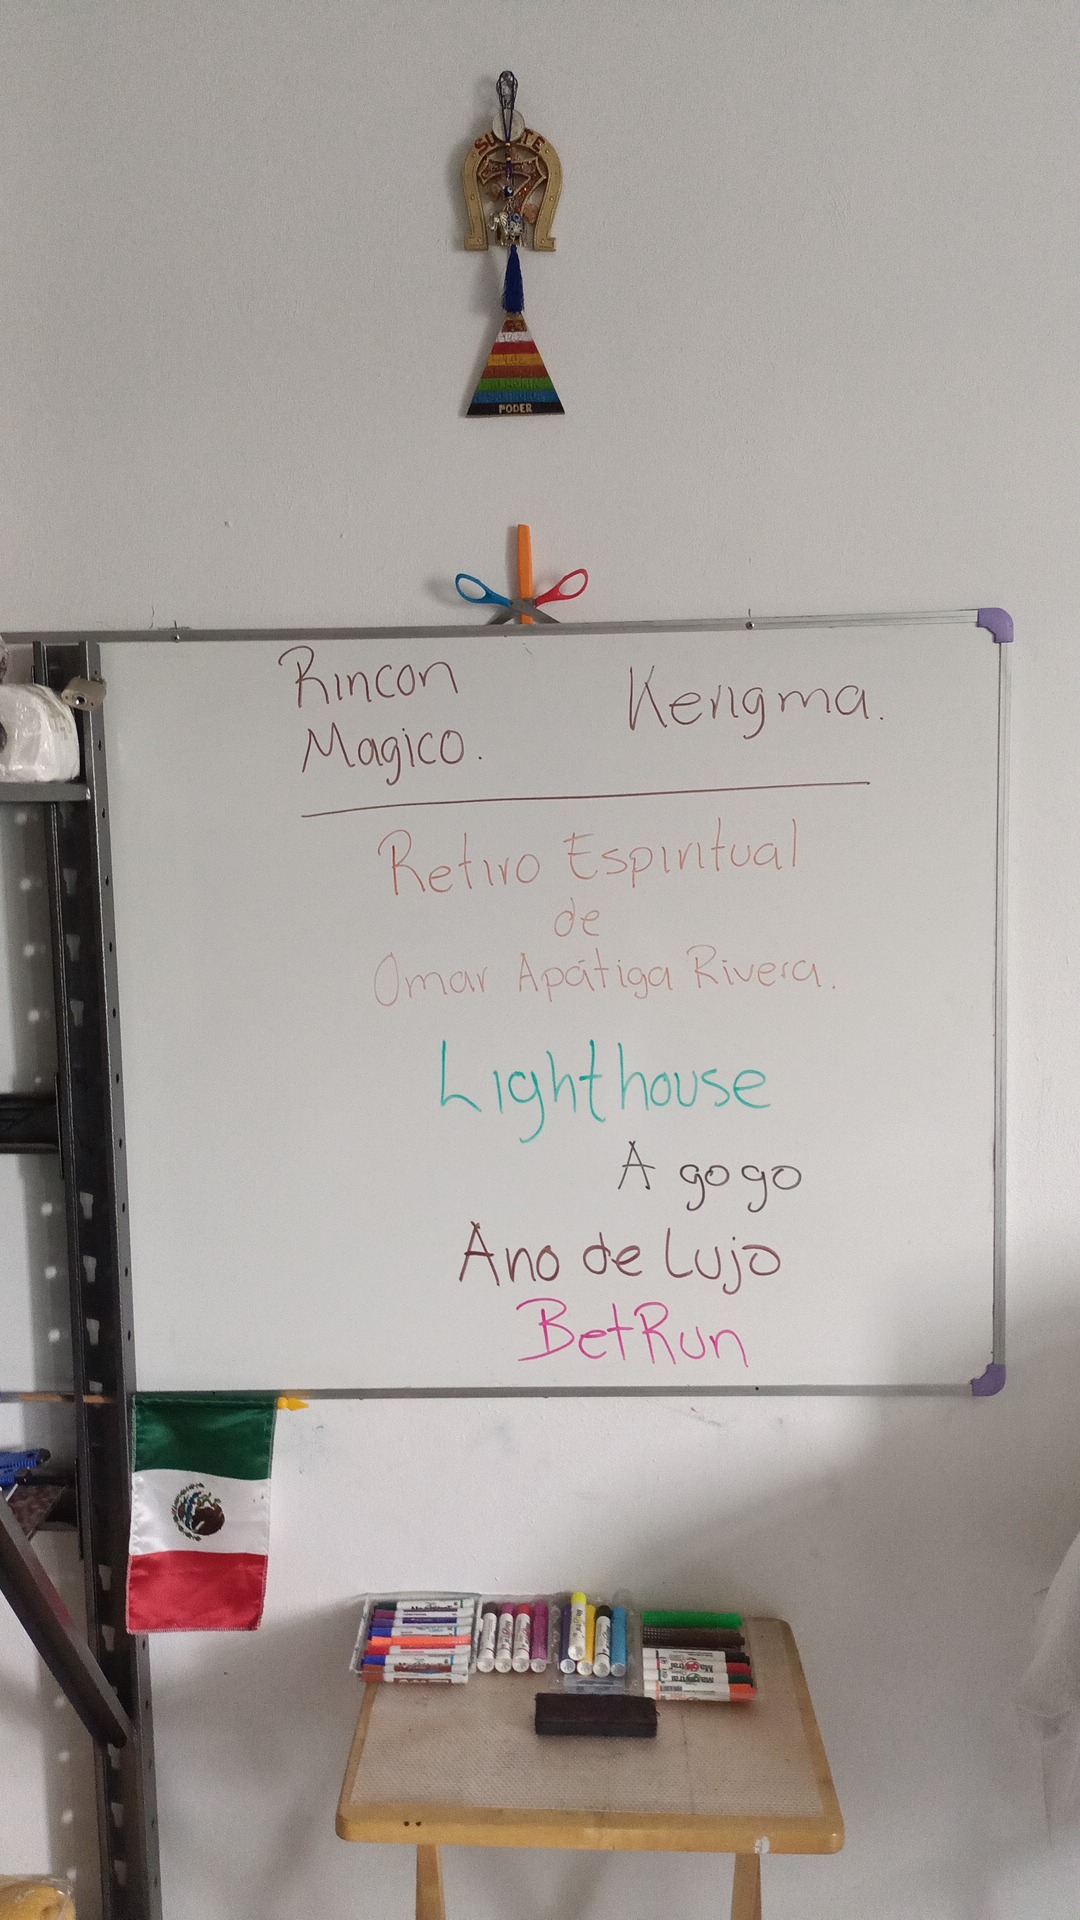 SUERTE
7
PODER
Rincon
Magico.
Kerigma.
Retiro Espiritual
de
Omar Apátiga Rivera.
Lighthouse
A gogo
Ano de Lujo
BetRun
Magistral